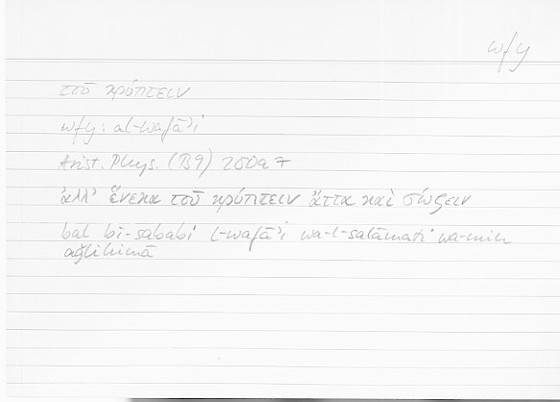 wfy
τοῦ κρύπτειν
wfy: al-wafāʾi
Arist. Phys. (B9) 200a7
ἀλλ' ἕνεκα τοῦ κρύπτειν ἄττα καὶ σῴζειν
bal bi-sababi l-wafāʾi wa-l-salāmati wa-min
aǧlihimā